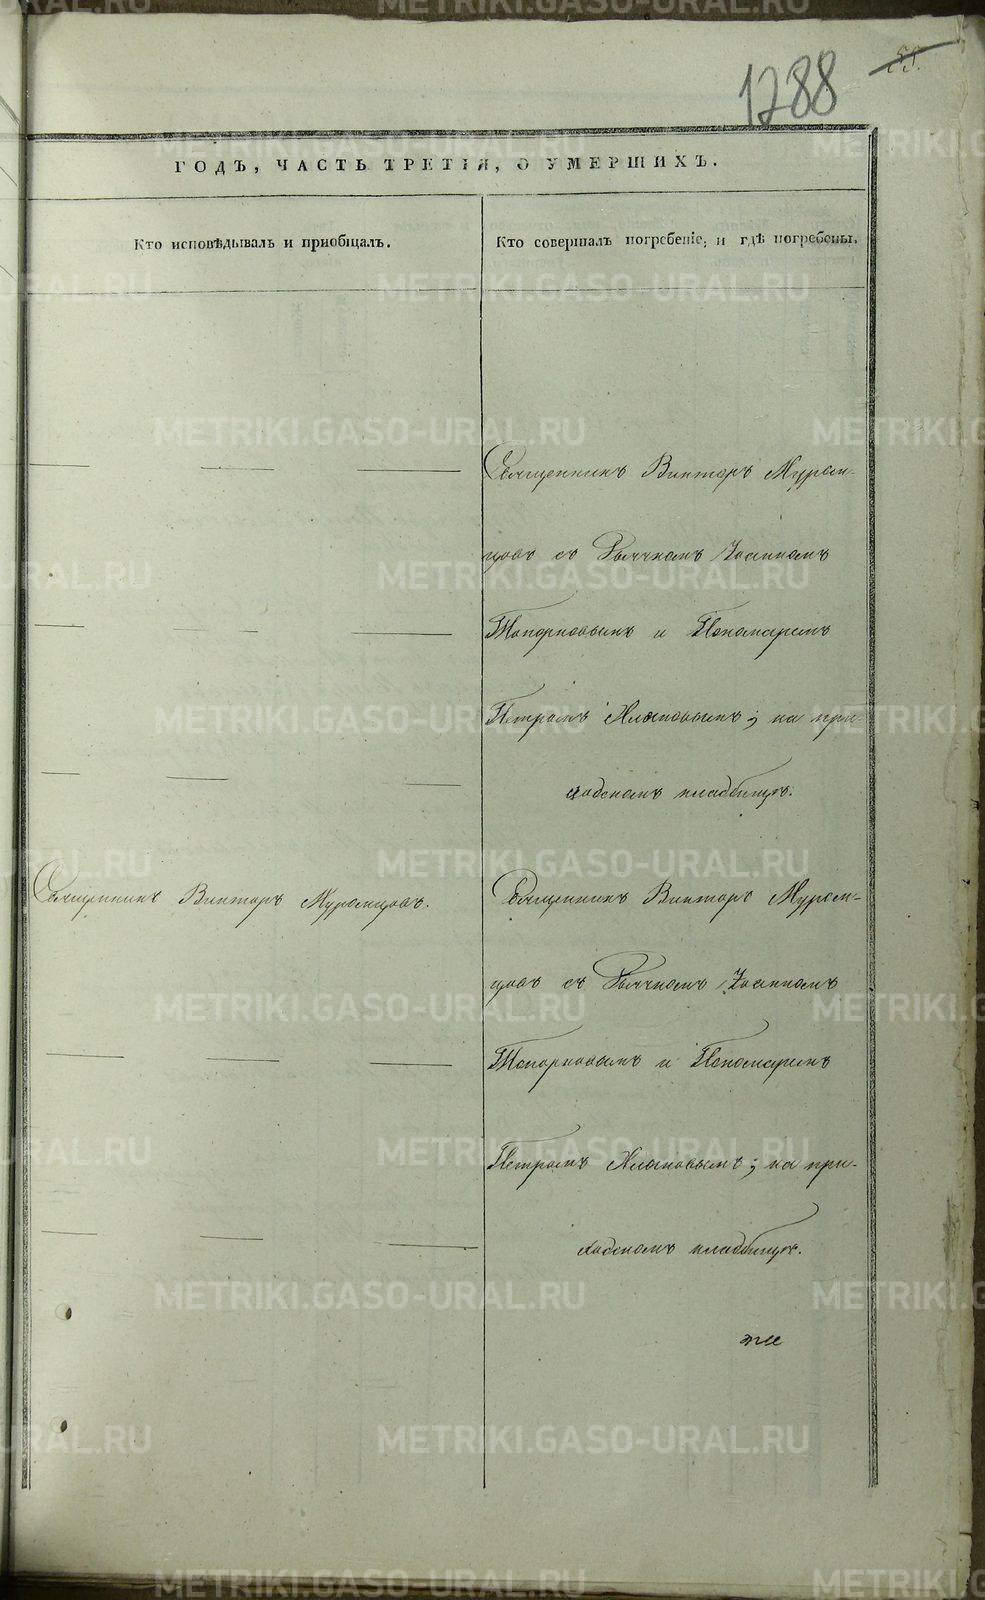 1288
55.
ГОДЪ, ЧАСТЬ ТРЕТІЯ, О УМЕРШИХЪ.
Кто исповѣдывалъ и приобщалъ.
Кто совершалъ погребеніе, и гдѣ погребены.
Священникъ Викторъ Муром-
цовъ съ Дьячкомъ Іоанномъ
Топорковымъ и Пономаремъ
Петромъ Хлыновымъ; на при-
ходскомъ кладбищѣ.
Священникъ Викторъ Муромцовъ.
Священникъ Викторъ Муром-
цовъ съ Дьячкомъ Іоанномъ
Топорковымъ и Пономаремъ
Петромъ Хлыновымъ; на при-
ходскомъ кладбищѣ.
METRIKI.GASO-URAL.RU